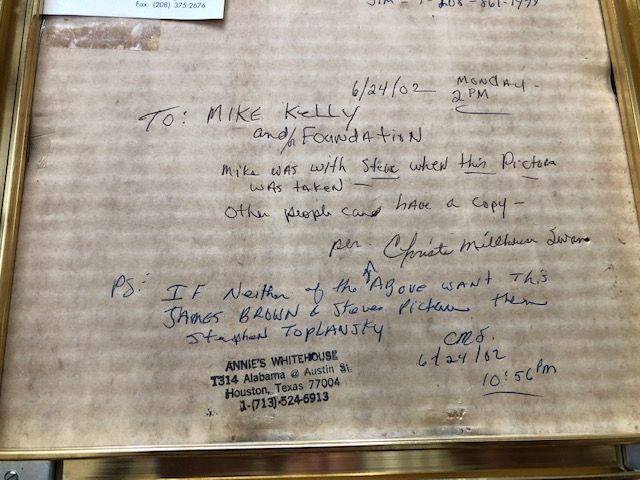 Fax: (208) 375-2676
JIM - 1-208-861-1499
6/24/02 MONDAY -
2 PM
TO: MIKE KELLY
and/or FOUNDATION
Mike was with Steve when this Picture
was taken
Other people can have a copy -
per. Christi Millhouse Swan
PS: IF Neither of the Above want this
JAMES BROWN & Steves Picture then
Stephen TOPLANSKY
CMS.
6/24/02
10:56 PM
ANNIE'S WHITEHOUSE
1314 Alabama @ Austin St.
Houston, Texas 77004
1-(713)-524-6913